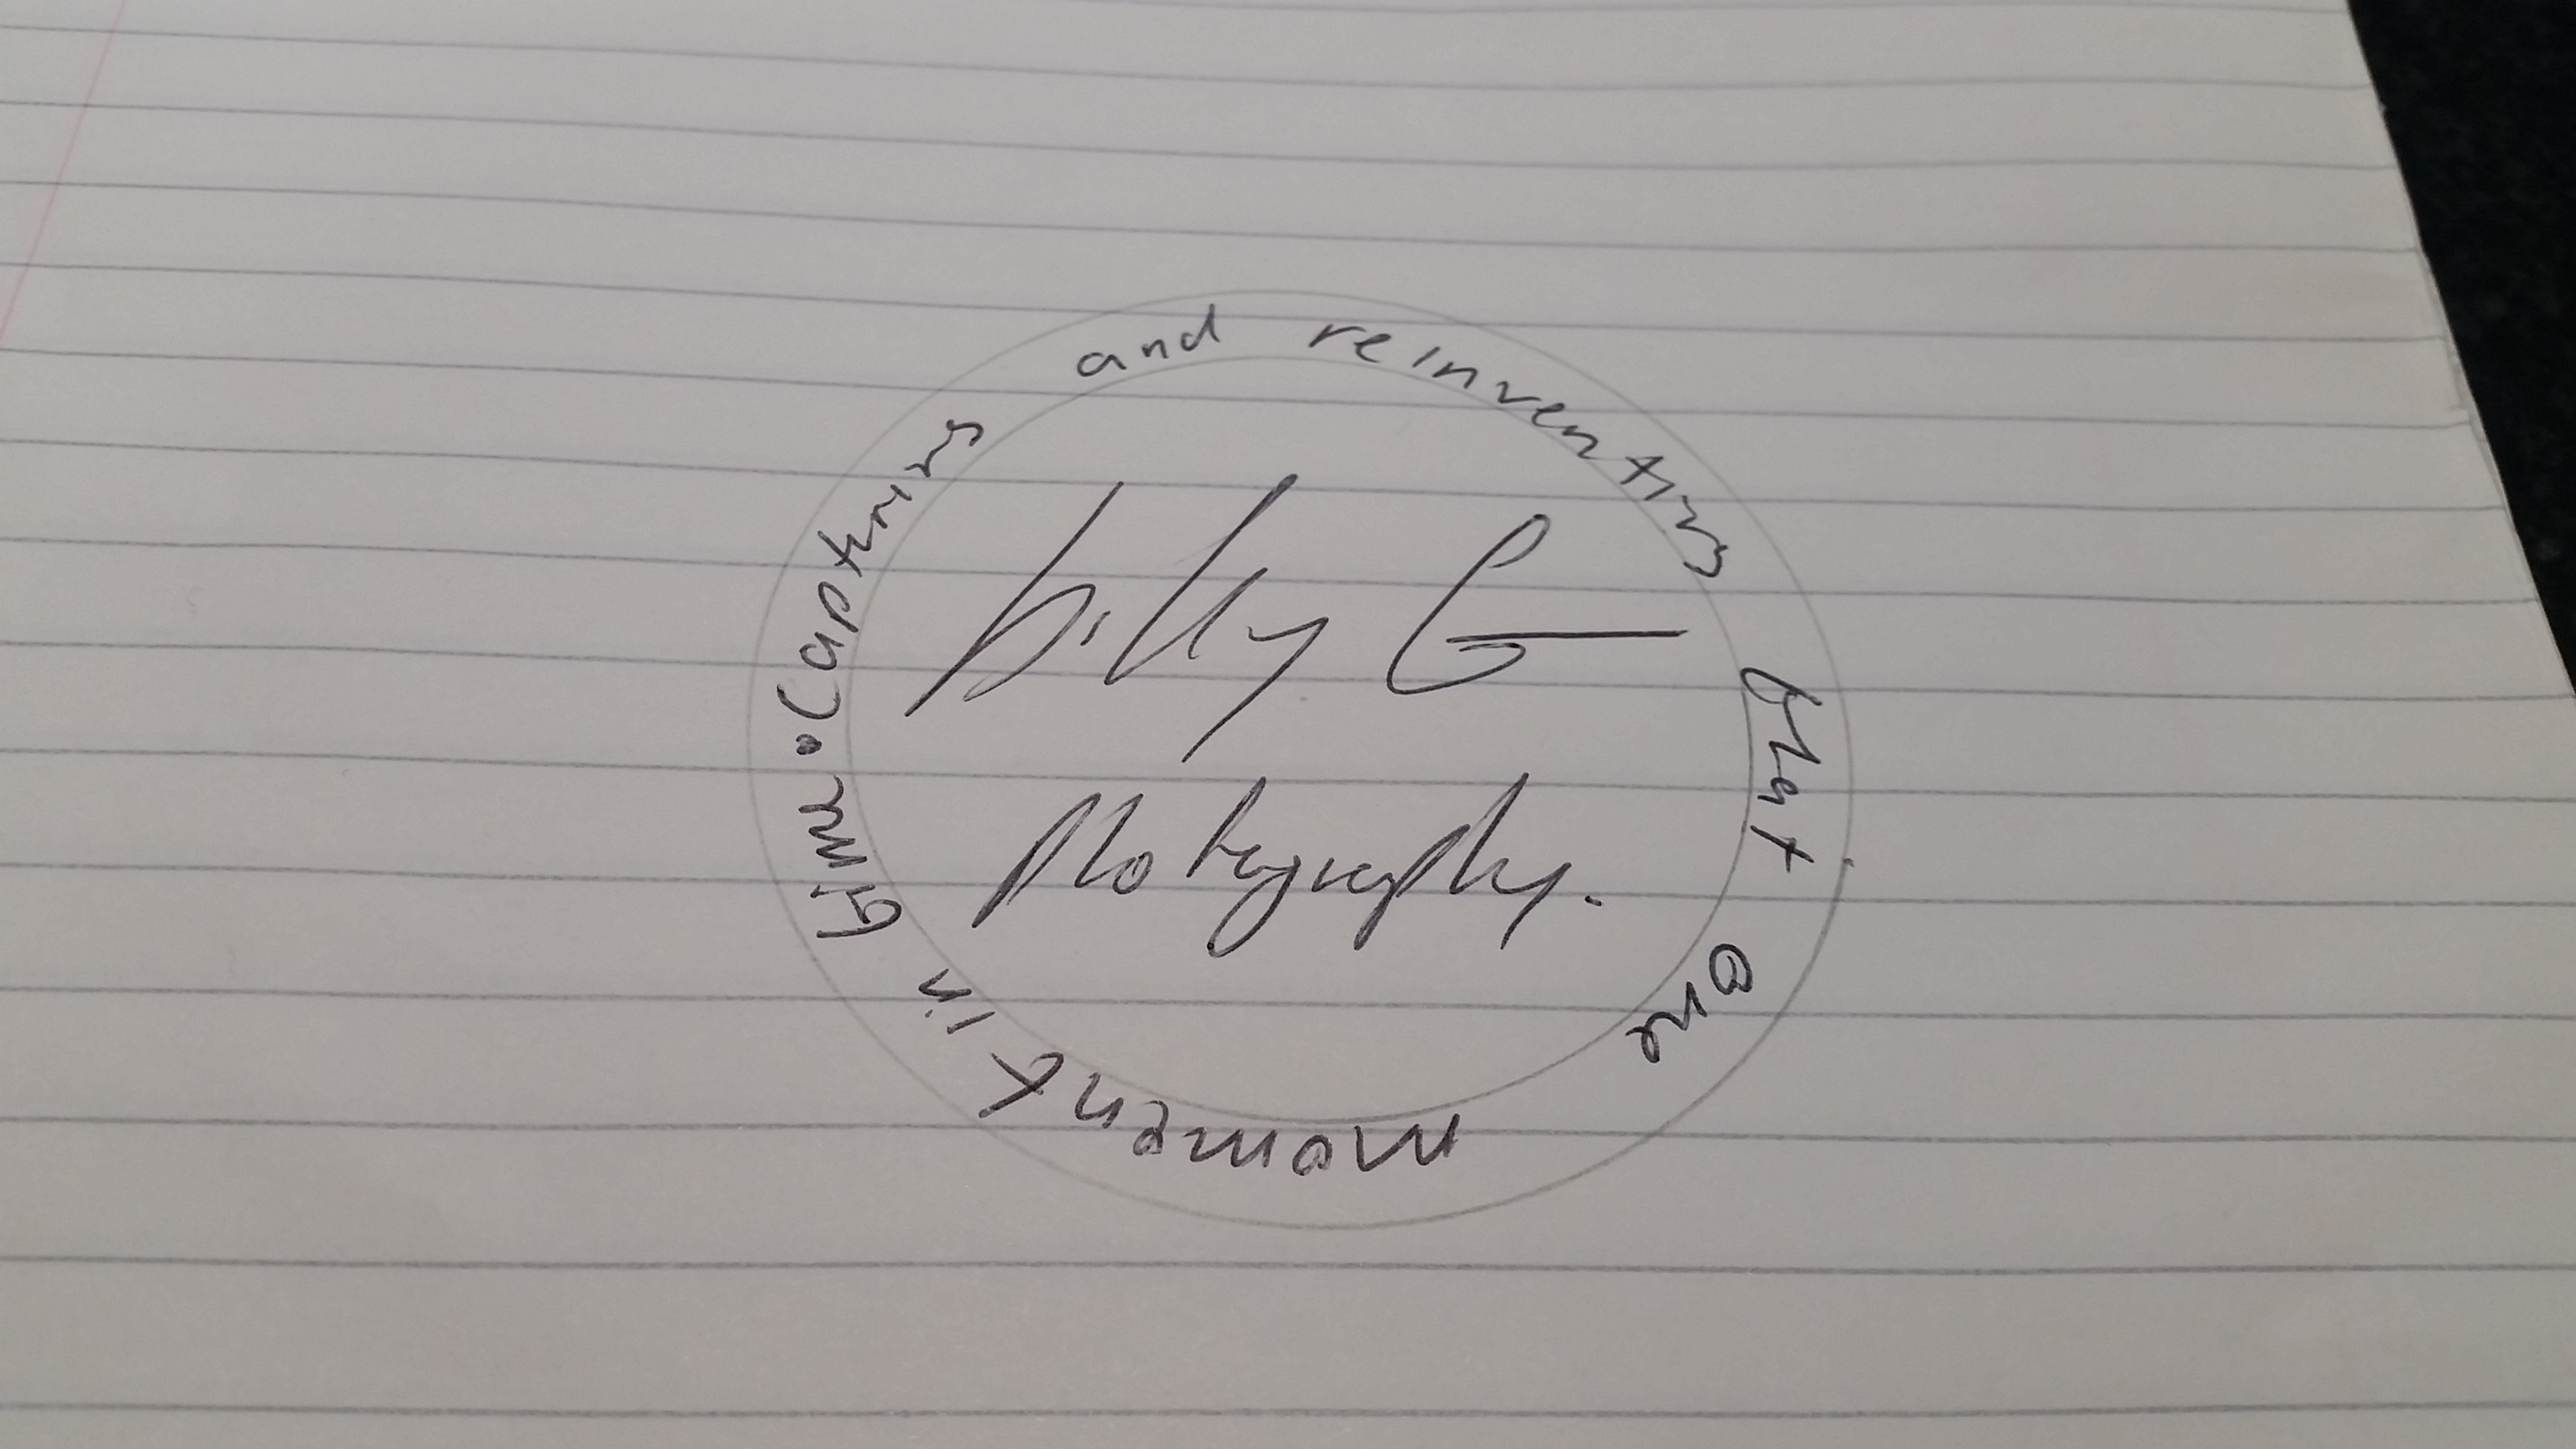 Capturing and reinventing that one moment in time.
billy G
Photography.